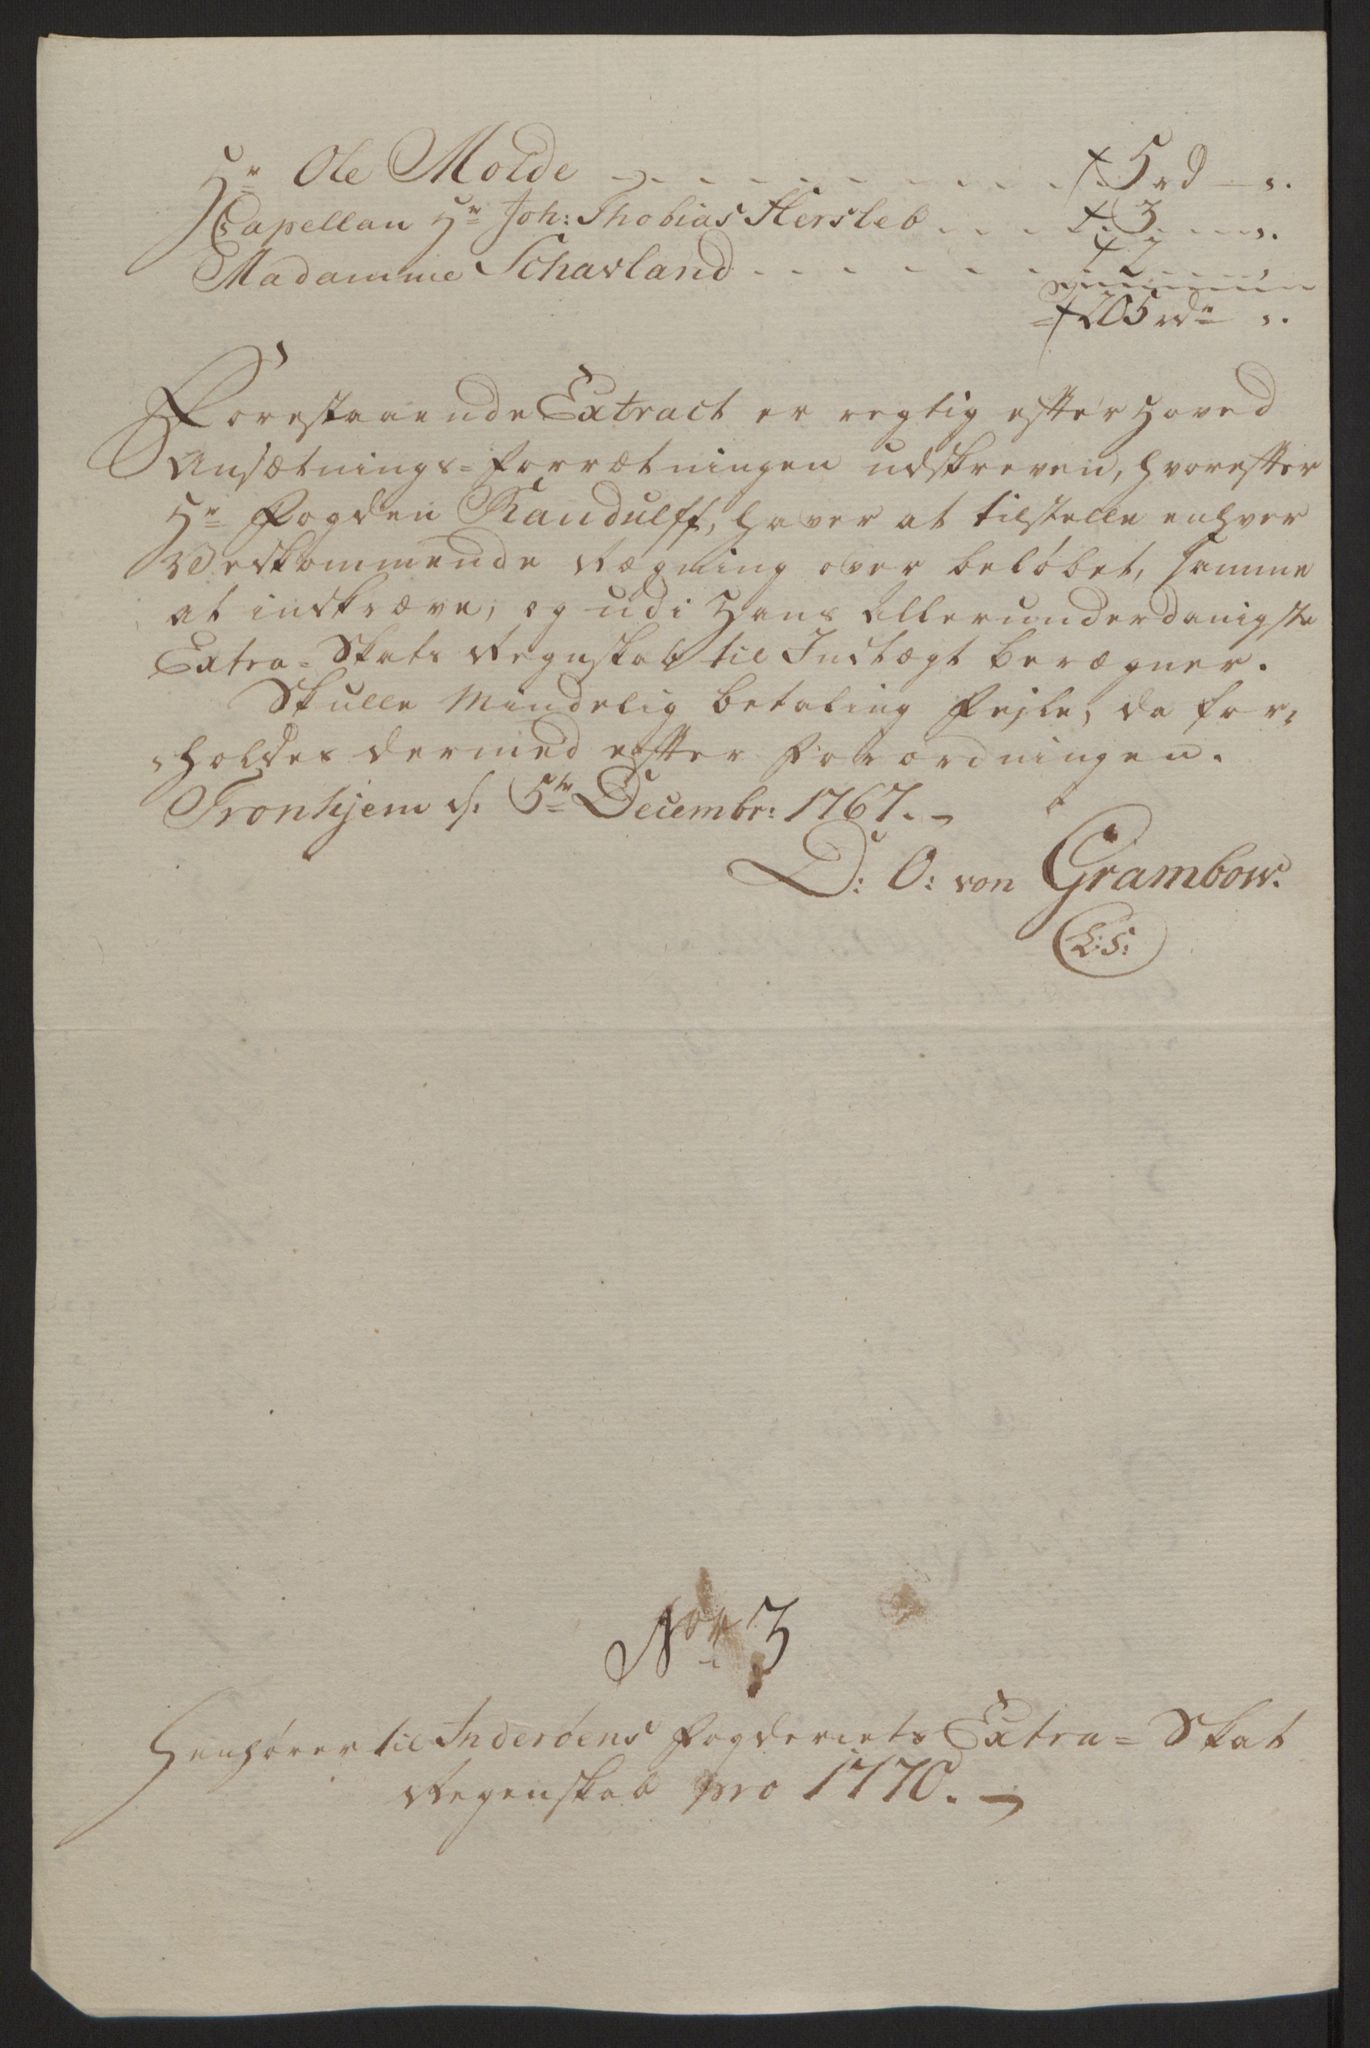 Hr Ole Molde - - - - - - - - - - 5 rd - s.
Capellan Hr Joh: Thobias Hersleb - - - - 3 - s.
Madamme Schavland - - - - - - - - 2 - s.
205 rdr s.
Forestaaende Extract er regtig efter Hoved
Ansætnings-Forrætningen udskreven, hvorefter
Hr Fogden Randulff, haver at tilstelle enhver
Vedkommende Regning over beløbet, samme
at indkræve, og udi Hans Allerunderdanigste
Extra-Skats Regnskab til Indtægt beregner.
Skulle Mindelig betaling Fejle, da for-
holdes dermed efter Forordningen.
Tronhjem d. 5te Decembr: 1767.
D: O: von Grambow.
L:S:
No 3
Henhører til Inderøens Fogderiets Extra-Skat
Regenskab pro 1770.